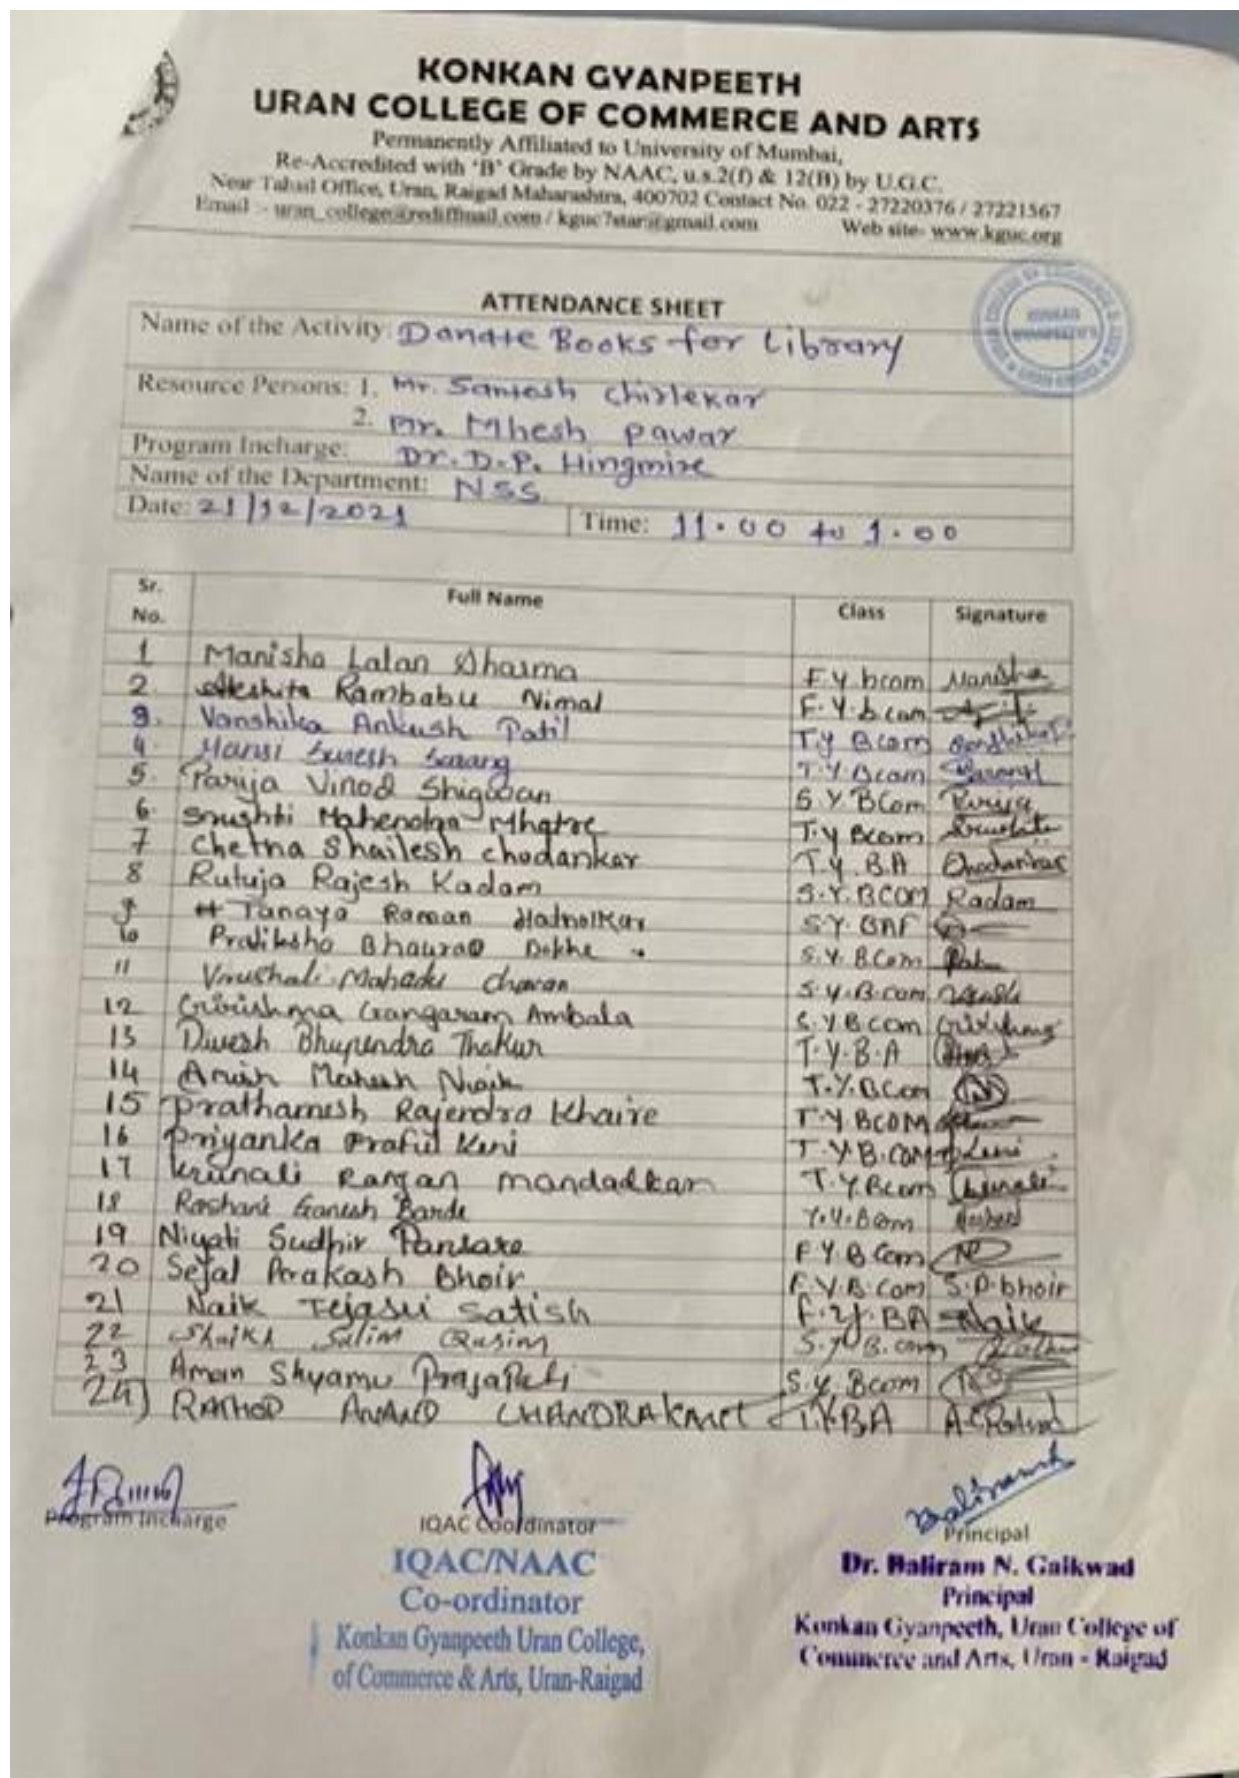 KONKAN GYANPEETH
URAN COLLEGE OF COMMERCE AND ARTS
Permanently Affiliated to University of Mumbai,
Re-Accredited with 'B' Grade by NAAC, u.s.2(f) & 12(B) by U.G.C.
Near Tahsil Office, Uran, Raigad Maharashtra, 400702 Contact No. 022 - 27220376 / 27221567
Email :- uran_college@rediffmail.com / kguc7star@gmail.com Web site- www.kguc.org
ATTENDANCE SHEET
Name of the Activity: Donate Books for Library
Resource Persons: 1. Mr. Santosh Chirlekar
2. Mr. Mhesh Pawar
Program Incharge: Dr. D.P. Hingmire
Name of the Department: NSS
Date: 21/12/2021 Time: 11.00 to 1.00
Sr. No. Full Name Class Signature
1 Manisha Lalan Sharma F.Y.bcom Manisha
2. Akshita Rambabu Nimal F.Y.b.com
3. Vanshika Ankush Patil T.Y Bcom
4. Mansi Suresh Sarang T.Y.Bcom
5. Parija Vinod Shigwan S.Y.BCom Parija
6. Srushti Mahendra Mhatre T.Y Bcom
7 Chetna Shailesh chodankar T.Y.B.A Chodankar
8 Rutuja Rajesh Kadam S.Y.BCOM Kadam
9 Tanaya Raman S.Y.BAF
10 Pratiksha Bhaurao Dokhe S.Y.BCom
11 Vrushali Mahadu Chavan S.Y.B.com
12 Gririshma Gangaram Ambala S.Y Bcom
13 Divesh Bhupendra Thakur T.Y.B.A
14 Anish Mahesh Naik T.Y.BCom
15 Prathamesh Rajendra Khaire T.Y BCOM
16 Priyanka Praful Keni T.Y.B.COM Keni
17 Krunali Ranjan mandadkar T.Y.Bcom Krunali
18 Roshani Ganesh Barde Y.Y.Bcom
19 Niyati Sudhir Pansare F Y B Com
20 Sejal Prakash Bhoir F.Y.B.Com S.P.bhoir
21 Naik Tejasvi Satish F.Y.BA Naik
22 Shaikh Salim Qasim S.Y.B.com
23 Aman Shyamu Prajapati S.Y.Bcom
24) RATHOD ANAND CHANDRAKANT T.Y.BA A.C.Rathod
Program Incharge IQAC Coordinator Principal
IQAC/NAAC
Co-ordinator
Konkan Gyanpeeth Uran College,
of Commerce & Arts, Uran-Raigad
Dr. Baliram N. Gaikwad
Principal
Konkan Gyanpeeth, Uran College of
Commerce and Arts, Uran - Raigad